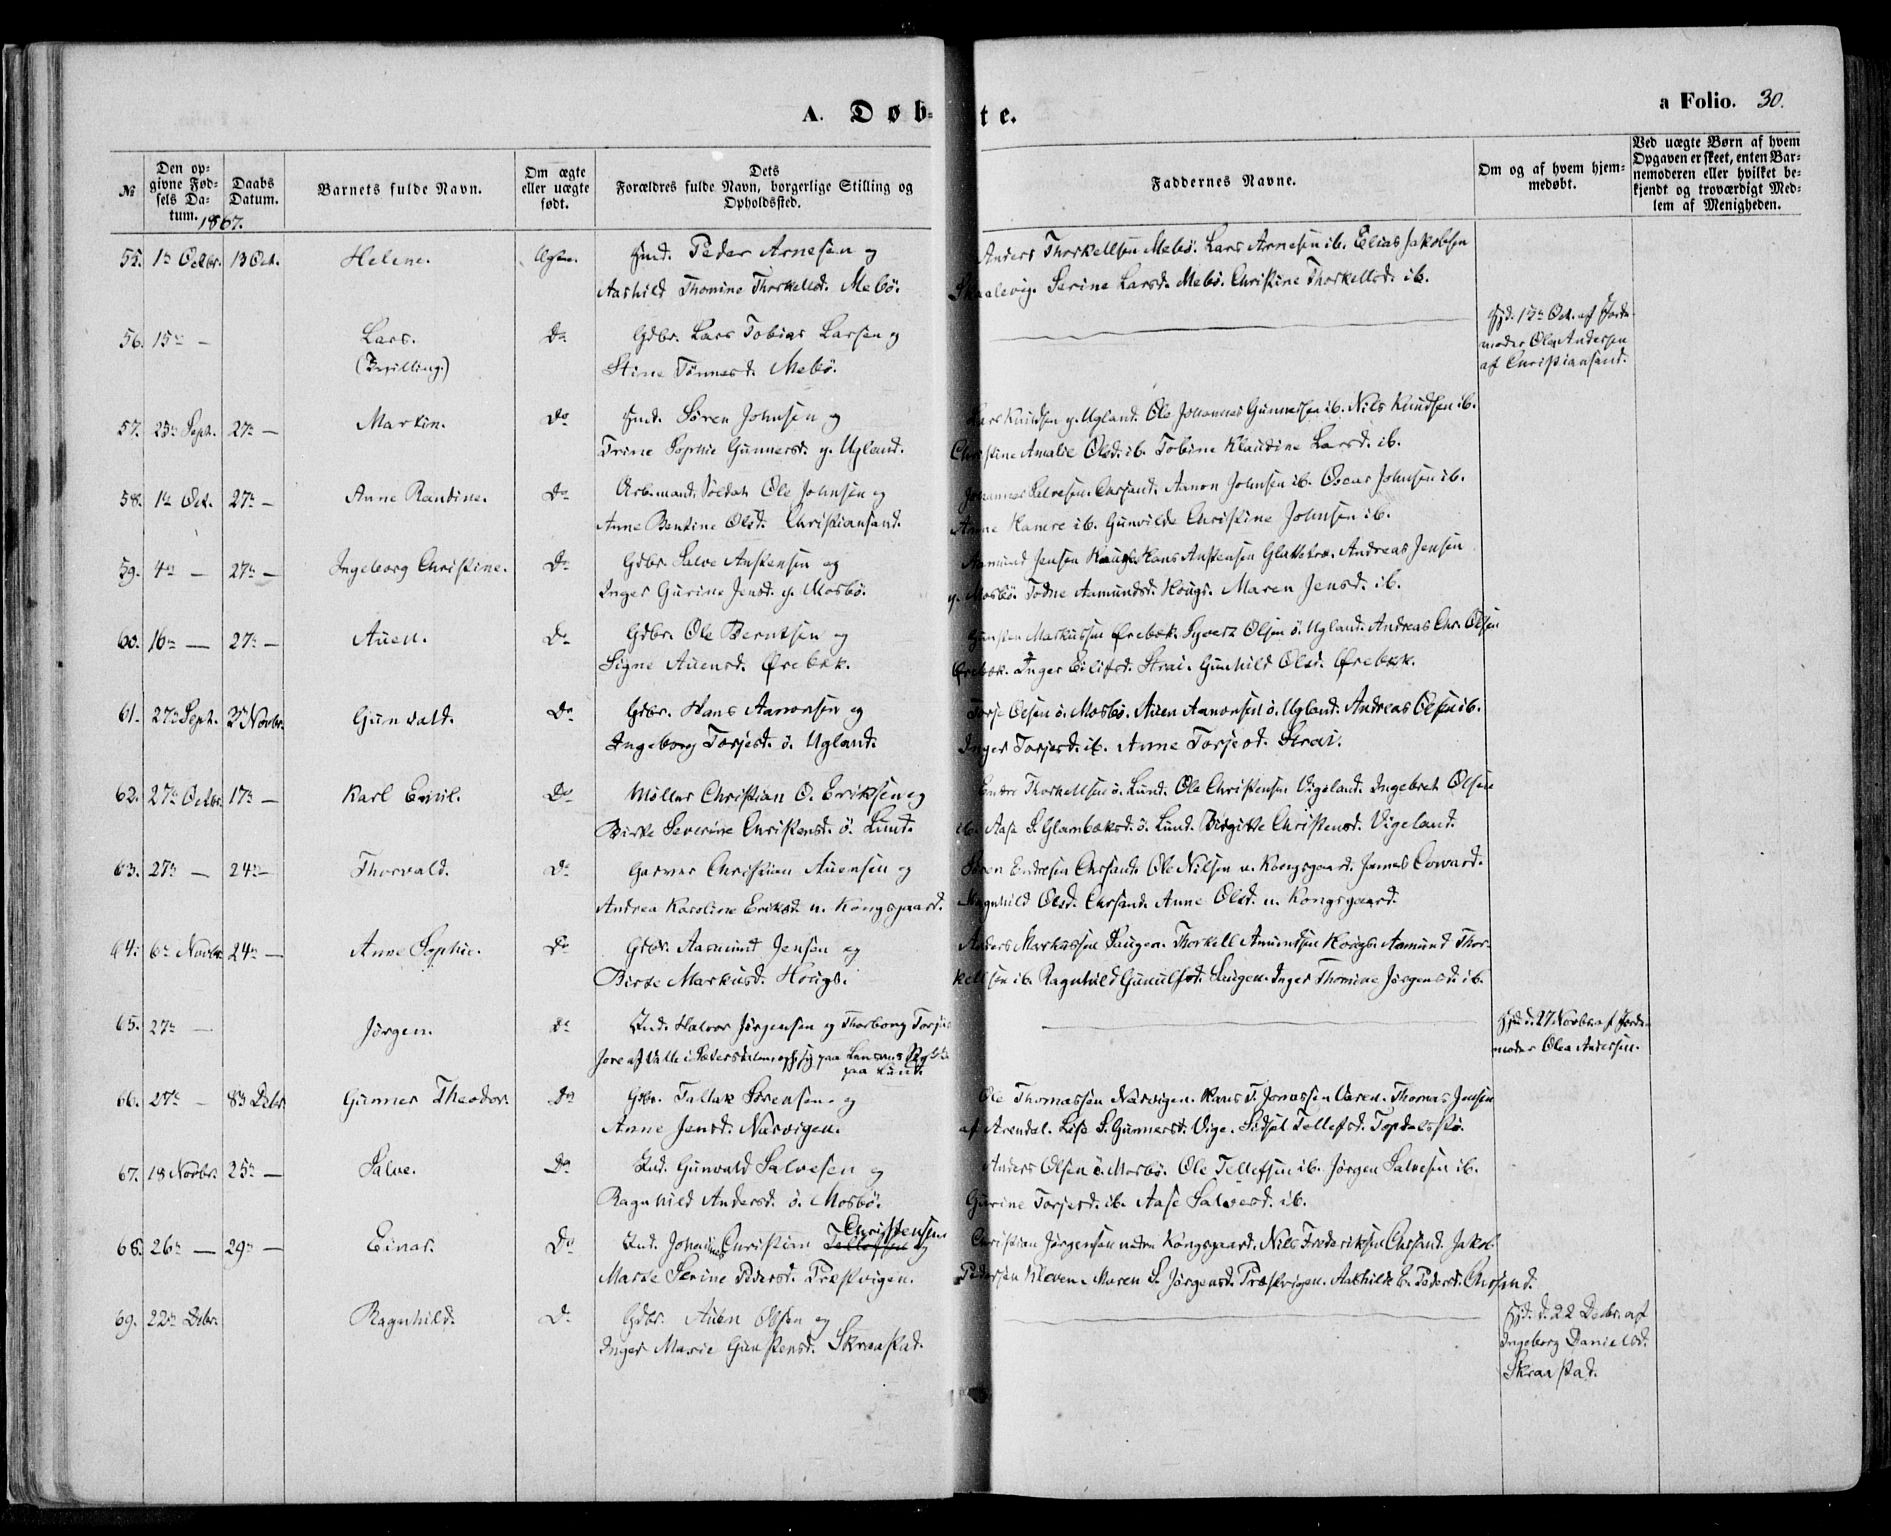 A. Døb-
te.
a Folio. 30.
№
Den op-
givne Fød-
sels Da-
tum.
Daabs
Datum.
Barnets fulde Navn.
Om ægte
eller uægte
født.
Dets
Forældres fulde Navn, borgerlige Stilling og
Opholdssted.
Faddernes Navne.
Om og af hvem hjem-
medøbt.
Ved uægte Børn af hvem
Opgaven er skeet, enten Bar-
nemoderen eller hvilket be-
kjendt og troværdigt Med-
lem af Menigheden.
1867.
55. 1ste Octbr. 13 Oct. Helene. Peder Arnesen og
Aashild Thomine Thorkelsd. Mebø.
Anders Thorkellsen Mebø. Lars Arnesen ib. Elias Jakobsen
Skaalevig. Serine Larsd. Mebø. Christine Thorkellsd. ib.
56. 15de — Lars. Do Gdbr. Lars Tobias Larsen og
(Trilling.) Stine Tønnesd. Mebø.
Hjd. 15de Oct. af Jorde-
moder Olea Andersen
af Christiansand.
57. 25de Sept. 27de — Martin. Do Søren Johnsen og
Trine Sophie Gunnersd. y. Ugland.
Lars Knudsen y. Ugland. Ole Johannes Gunnersen ib. Nils Knudsen ib.
Christine Amalie Olsd. ib. Tobine Klaudine Larsd. ib.
58. 1ste Oct. 27de — Anne Randine. Do Arb.mand, Soldat Ole Johnsen og
Anne Bentine Olsd. Christiansand.
Johannes Salvesen Chrsand. Aanon Johnsen ib. Oscar Johnsen ib.
Anne Hamre ib. Gunvilde Christine Johnsen ib.
59. 4de — 27de — Ingeborg Christine. Do Gdbr. Salve Anstensen og
Inger Gurine Jensd. y. Mosbø.
Aamund Jensen Haugs. Hans Anstensen Andreas Jensen
y. Mosbø. Todne Aamundsd. Hougs. Maren Jensd. ib.
60. 16de — 27de — Auen. Do Gdbr. Ole Berntsen og
Signe Auensd. Ørebæk.
Gunsten Markussen Ørebæk. Syvert Olsen ø. Ugland. Andreas Chr. Olsen
Ørebæk. Inger Eilifsd. Strai. Gunhild Olsd. Ørebæk.
61. 27de Sept. 3de Novbr. Gunvald. Do Gdbr. Hans Aanonsen og
Ingeborg Torjesd. ø. Ugland.
Torje Olsen ø. Mosbø. Auen Aanonsen ø. Ugland. Andreas Olsen ib.
Inger Torjesd. ib. Anne Torjesd. Strai.
62. 27de Octbr. 17de — Karl Emil. Do Møller Christian O. Eriksen og
Birte Severine Christensd. ø. Lund.
Endre Thorkellsen ø. Lund. Ole Christensen Vigeland. Ingebret Olsen
ib. Aase S. Glambæksd. ø. Lund. Birgitte Christensd. Vigeland.
63. 27de — 24de — Thorvald. Do Garver Christian Auensen og
Andrea Karoline Eriksd. n. Kongsgaard.
Søren Endresen Chrsand. Ole Nilsen n. Kongsgaard. James Coward.
Magnhild Olsd. Chrsand. Anne Olsd. n. Kongsgaard.
64. 6te Novbr. 24de — Anne Sophie. Do Gdbr. Aasmund Jensen og
Birte Markusd. Hougs.
Anders Markussen Haugen. Thorkell Amundsen Hougs. Aamund Thor-
kellsen ib. Ragnhild Gunulfsd. Haugen. Inger Thomine Jørgensd. ib.
65. 27de — Jørgen. Do Ind. Halvor Jørgensen og Thorborg Torjus-
af Valle i Sætersdalen, paa
paa Lund.
Hjd. d. 27 Novbr. af Jorde-
moder Olea Andersen.
66. 27de — 8de Decbr. Gunner Theodor. Do Gdbr. Tallak Sørensen og
Anne Jensd. Narvigen.
Ole Thomassen Narvigen. Hans T. Jonassen Varen. Thomas Jensen
af Arendal. Lise S. Gunnersd. Vige. Sidsel Tellefsd. Topdalsfjo.
67. 18 Novbr. 25de — Salve. Do Ind. Gunvald Salvesen og
Ragnhild Andersd. ø. Mosbø.
Anders Olsen ø. Mosbø. Ole Tellefsen ib. Jørgen Salvesen ib.
Gurine Torjesd. ib. Aase Salvesd. ib.
68. 26de — 29de — Einar. Do Ind. Johannes Christian Tellefsen Christensen og
Marte Serine Pedersd. Træskvigen.
Christian Jørgensen nedre Kongsgaard. Nils Frederiksen Chrsand. Jakob
Pedersen Kleven. Maren S. Jørgensd. Træskvigen. Aashilde C. Pedersd. Chrsand.
69. 22de Decbr. Ragnhild. Do Gdbr. Auen Olsen og
Inger Marie Gunstensd. Skraastad.
Hjd. d. 22 Decbr. af
Ingeborg Danielsd.
Skraastad.